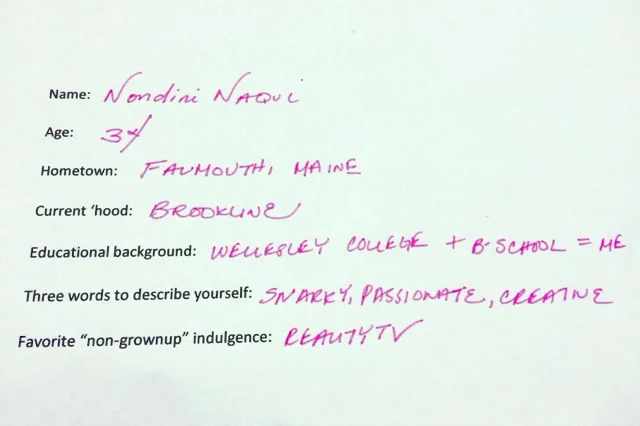 Name: Nondini Naqui
Age: 34
Hometown: FALMOUTH, MAINE
Current 'hood: BROOKLINE
Educational background: WELLESLEY COLLEGE + B-SCHOOL = ME
Three words to describe yourself: SNARKY, PASSIONATE, CREATIVE
Favorite "non-grownup" indulgence: REALITY TV